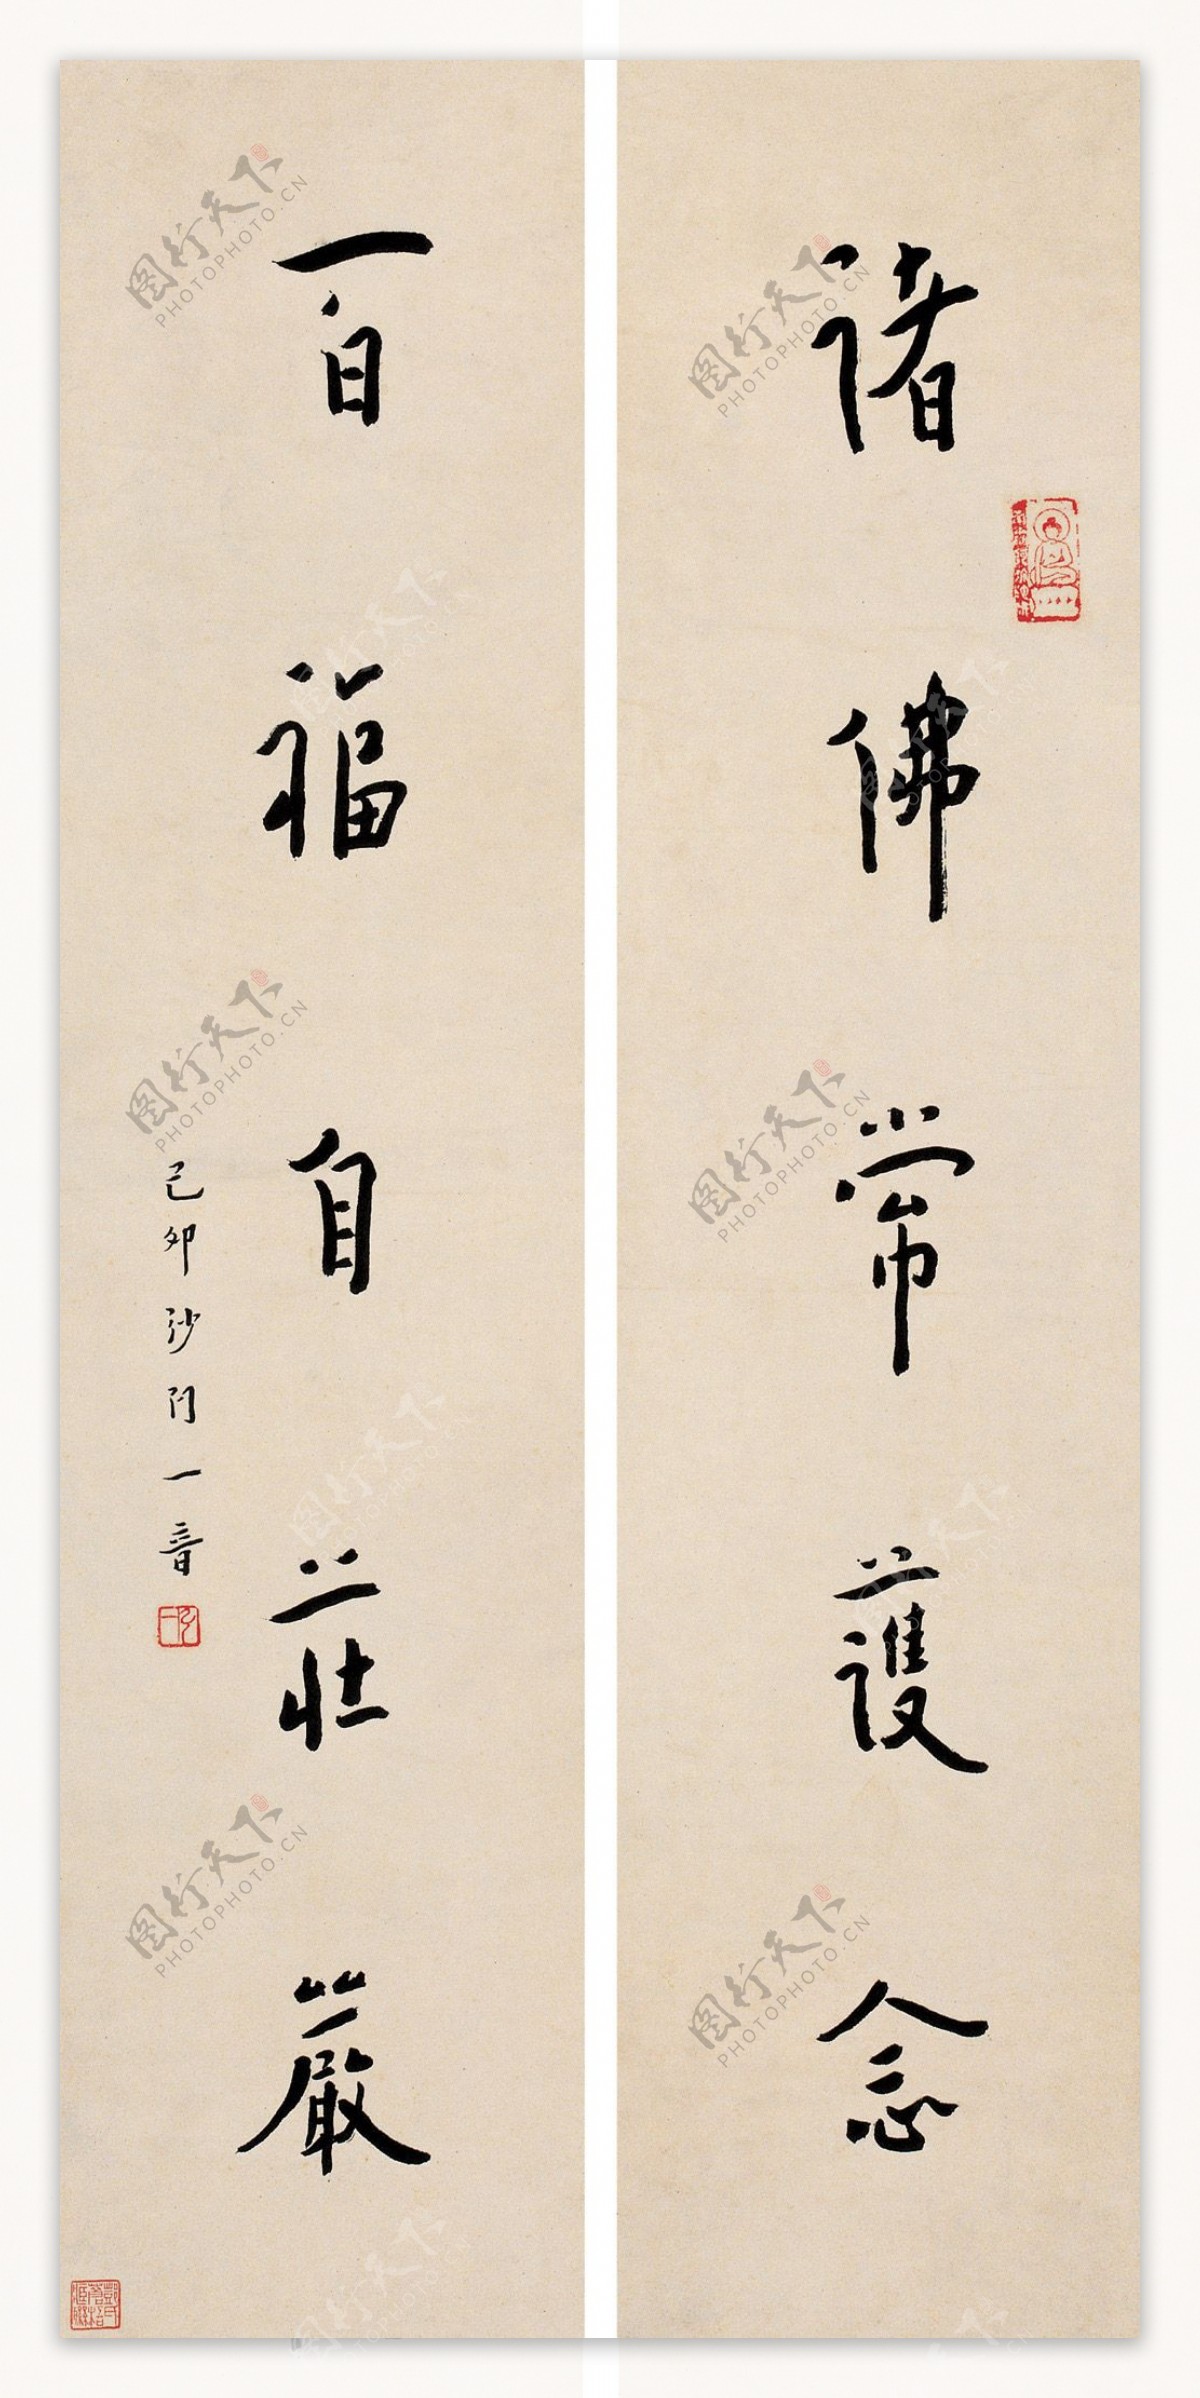 諸佛常護念
百福自莊嚴
己卯沙門一音
图行天下
PHOTOPHOTO.CN